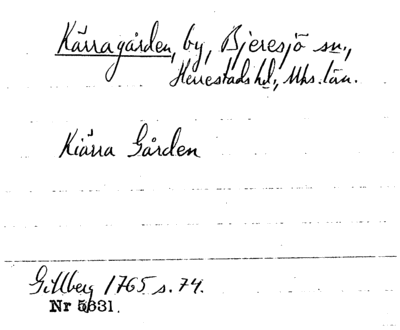 Kärragården, by, Bjeresjö sn.,
Herrestads hd., Mhs. län.
Kiärra Gården
Gillberg 1765 s. 74.
Nr 5631.